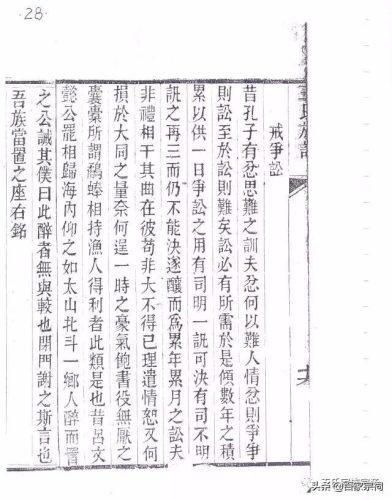 28
戒爭訟
昔孔子有忿思難之訓夫忿何以難人情忿則爭爭
則訟至於訟則難矣訟必有所需於是傾數年之積
累以供一日爭訟之用有司明一訊可決有司不明
訊之再三而仍不能決遂釀而為累年累月之訟夫
非禮相干其曲在彼苟非大不得已理遣情恕又何
損於大同之量奈何逞一時之豪氣飽書役無厭之
囊橐所謂鷸蜯相持漁人得利者此類是也昔呂文
懿公罷相歸海內仰之如太山北斗一鄉人醉而詈
之公誡其僕曰此醉者無與較也閉門謝之斯言也
吾族當置之座右銘
头条 @百家宗祠